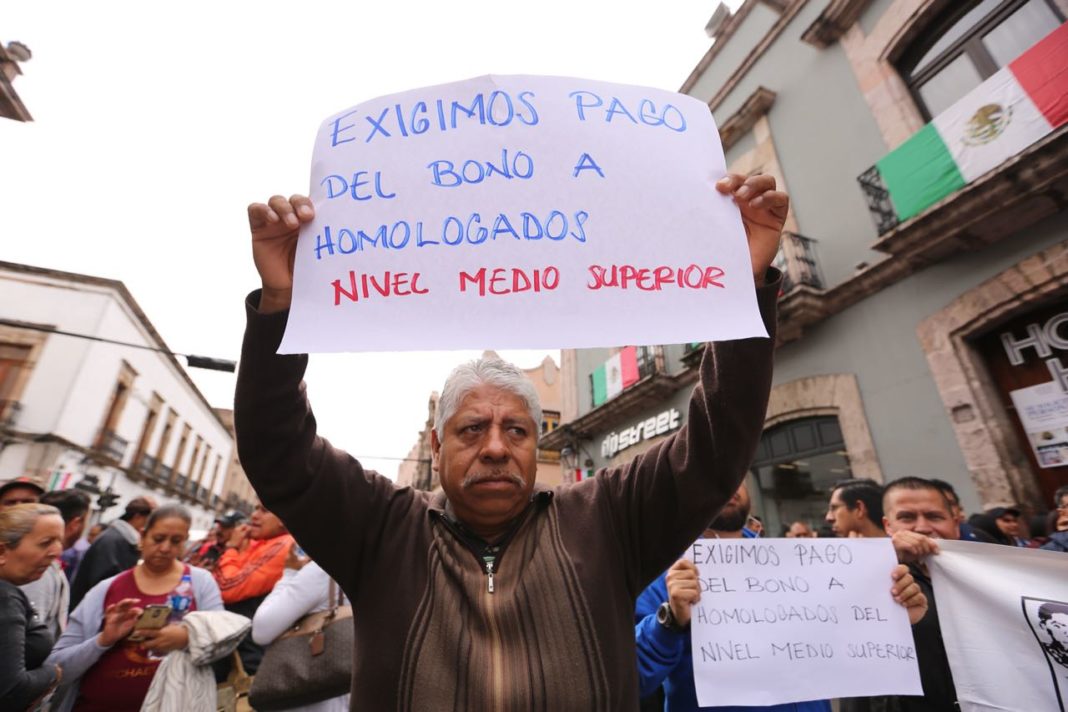 EXIGIMOS PAGO
DEL BONO A
HOMOLOGADOS
NIVEL MEDIO SUPERIOR
flipstreet
EXIGIMOS PAGO
DEL BONO A
HOMOLOGADOS DEL
NIVEL MEDIO SUPERIOR